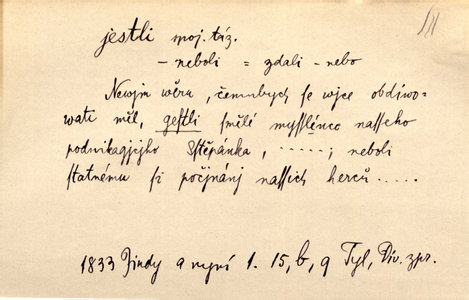 jestli spoj. táz.
– neboli = zdali – nebo
Newjm wěru, čemubych se wjce obdiwo-
wati měl, gestli smělé myšlénce nasseho
podnikagjcjho Sstěpánka, . . . . . ; neboli
statnému si počjnánj nassich herců . . . . .
1833 Jindy a nyní 1. 15, b, q Tyl, Div. zpr.